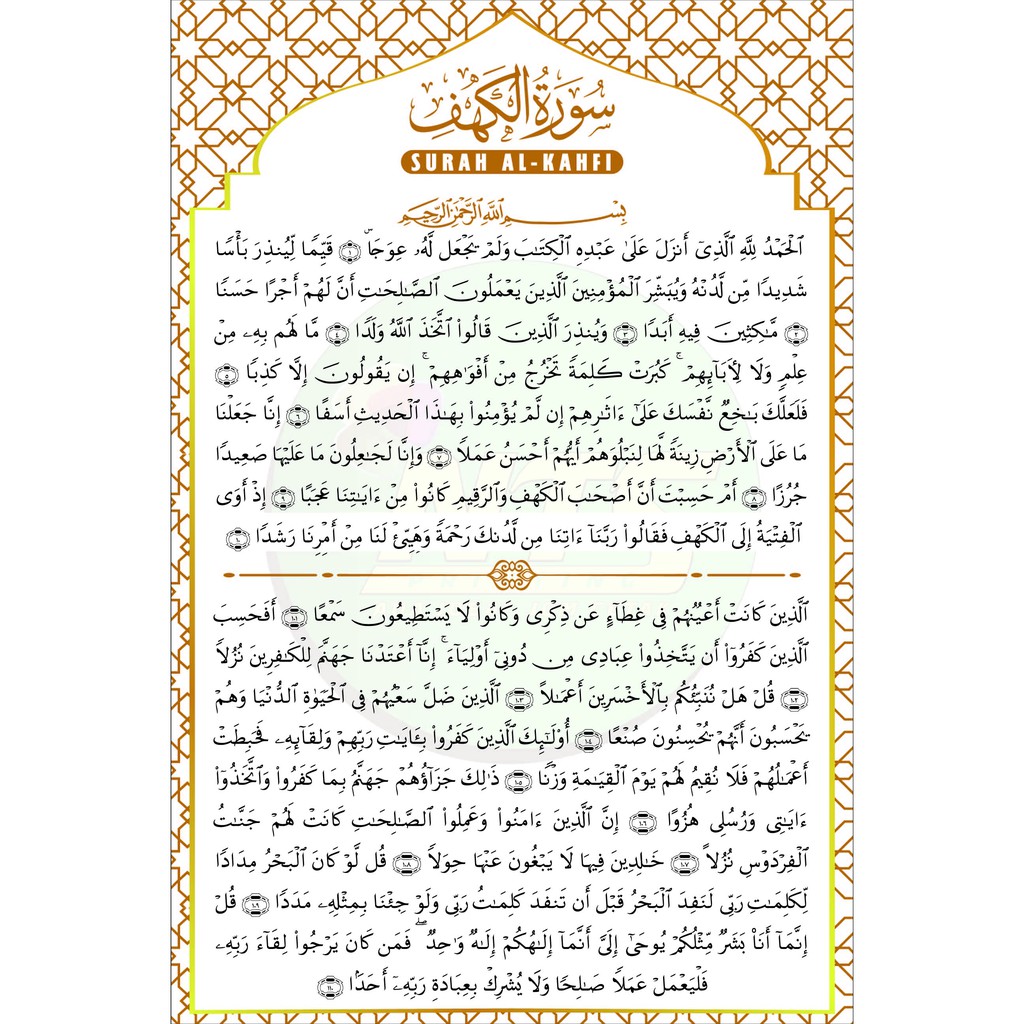 سُورَةُ الْكَهْفِ
SURAH AL-KAHFI
بِسْمِ اللَّهِ الرَّحْمَٰنِ الرَّحِيمِ
الْحَمْدُ لِلَّهِ الَّذِىٓ أَنزَلَ عَلَىٰ عَبْدِهِ الْكِتَٰبَ وَلَمْ يَجْعَل لَّهُۥ عِوَجَاۜ ١ قَيِّمًا لِّيُنذِرَ بَأْسًا
شَدِيدًا مِّن لَّدُنْهُ وَيُبَشِّرَ الْمُؤْمِنِينَ الَّذِينَ يَعْمَلُونَ الصَّٰلِحَٰتِ أَنَّ لَهُمْ أَجْرًا حَسَنًا
٢ مَّٰكِثِينَ فِيهِ أَبَدًا ٣ وَيُنذِرَ الَّذِينَ قَالُوا۟ اتَّخَذَ اللَّهُ وَلَدًا ٤ مَّا لَهُم بِهِۦ مِنْ
عِلْمٍ وَلَا لِأَبَآئِهِمْ ۚ كَبُرَتْ كَلِمَةً تَخْرُجُ مِنْ أَفْوَٰهِهِمْ ۚ إِن يَقُولُونَ إِلَّا كَذِبًا ٥
فَلَعَلَّكَ بَٰخِعٌ نَّفْسَكَ عَلَىٰٓ ءَاثَٰرِهِمْ إِن لَّمْ يُؤْمِنُوا۟ بِهَٰذَا الْحَدِيثِ أَسَفًا ٦ إِنَّا جَعَلْنَا
مَا عَلَى الْأَرْضِ زِينَةً لَّهَا لِنَبْلُوَهُمْ أَيُّهُمْ أَحْسَنُ عَمَلًا ٧ وَإِنَّا لَجَٰعِلُونَ مَا عَلَيْهَا صَعِيدًا
جُرُزًا ٨ أَمْ حَسِبْتَ أَنَّ أَصْحَٰبَ الْكَهْفِ وَالرَّقِيمِ كَانُوا۟ مِنْ ءَايَٰتِنَا عَجَبًا ٩ إِذْ أَوَى
الْفِتْيَةُ إِلَى الْكَهْفِ فَقَالُوا۟ رَبَّنَآ ءَاتِنَا مِن لَّدُنكَ رَحْمَةً وَهَيِّئْ لَنَا مِنْ أَمْرِنَا رَشَدًا ١٠
الَّذِينَ كَانَتْ أَعْيُنُهُمْ فِى غِطَآءٍ عَن ذِكْرِى وَكَانُوا۟ لَا يَسْتَطِيعُونَ سَمْعًا ١٠١ أَفَحَسِبَ
الَّذِينَ كَفَرُوٓا۟ أَن يَتَّخِذُوا۟ عِبَادِى مِن دُونِىٓ أَوْلِيَآءَ ۚ إِنَّآ أَعْتَدْنَا جَهَنَّمَ لِلْكَٰفِرِينَ نُزُلًا
١٠٢ قُلْ هَلْ نُنَبِّئُكُم بِالْأَخْسَرِينَ أَعْمَٰلًا ١٠٣ الَّذِينَ ضَلَّ سَعْيُهُمْ فِى الْحَيَوٰةِ الدُّنْيَا وَهُمْ
يَحْسَبُونَ أَنَّهُمْ يُحْسِنُونَ صُنْعًا ١٠٤ أُو۟لَٰٓئِكَ الَّذِينَ كَفَرُوا۟ بِـَٔايَٰتِ رَبِّهِمْ وَلِقَآئِهِۦ فَحَبِطَتْ
أَعْمَٰلُهُمْ فَلَا نُقِيمُ لَهُمْ يَوْمَ الْقِيَٰمَةِ وَزْنًا ١٠٥ ذَٰلِكَ جَزَآؤُهُمْ جَهَنَّمُ بِمَا كَفَرُوا۟ وَاتَّخَذُوٓا۟
ءَايَٰتِى وَرُسُلِى هُزُوًا ١٠٦ إِنَّ الَّذِينَ ءَامَنُوا۟ وَعَمِلُوا۟ الصَّٰلِحَٰتِ كَانَتْ لَهُمْ جَنَّٰتُ
الْفِرْدَوْسِ نُزُلًا ١٠٧ خَٰلِدِينَ فِيهَا لَا يَبْغُونَ عَنْهَا حِوَلًا ١٠٨ قُل لَّوْ كَانَ الْبَحْرُ مِدَادًا
لِّكَلِمَٰتِ رَبِّى لَنَفِدَ الْبَحْرُ قَبْلَ أَن تَنفَدَ كَلِمَٰتُ رَبِّى وَلَوْ جِئْنَا بِمِثْلِهِۦ مَدَدًا ١٠٩ قُلْ
إِنَّمَآ أَنَا۠ بَشَرٌ مِّثْلُكُمْ يُوحَىٰٓ إِلَىَّ أَنَّمَآ إِلَٰهُكُمْ إِلَٰهٌ وَٰحِدٌ ۖ فَمَن كَانَ يَرْجُوا۟ لِقَآءَ رَبِّهِۦ
فَلْيَعْمَلْ عَمَلًا صَٰلِحًا وَلَا يُشْرِكْ بِعِبَادَةِ رَبِّهِۦٓ أَحَدًۢا ١١٠